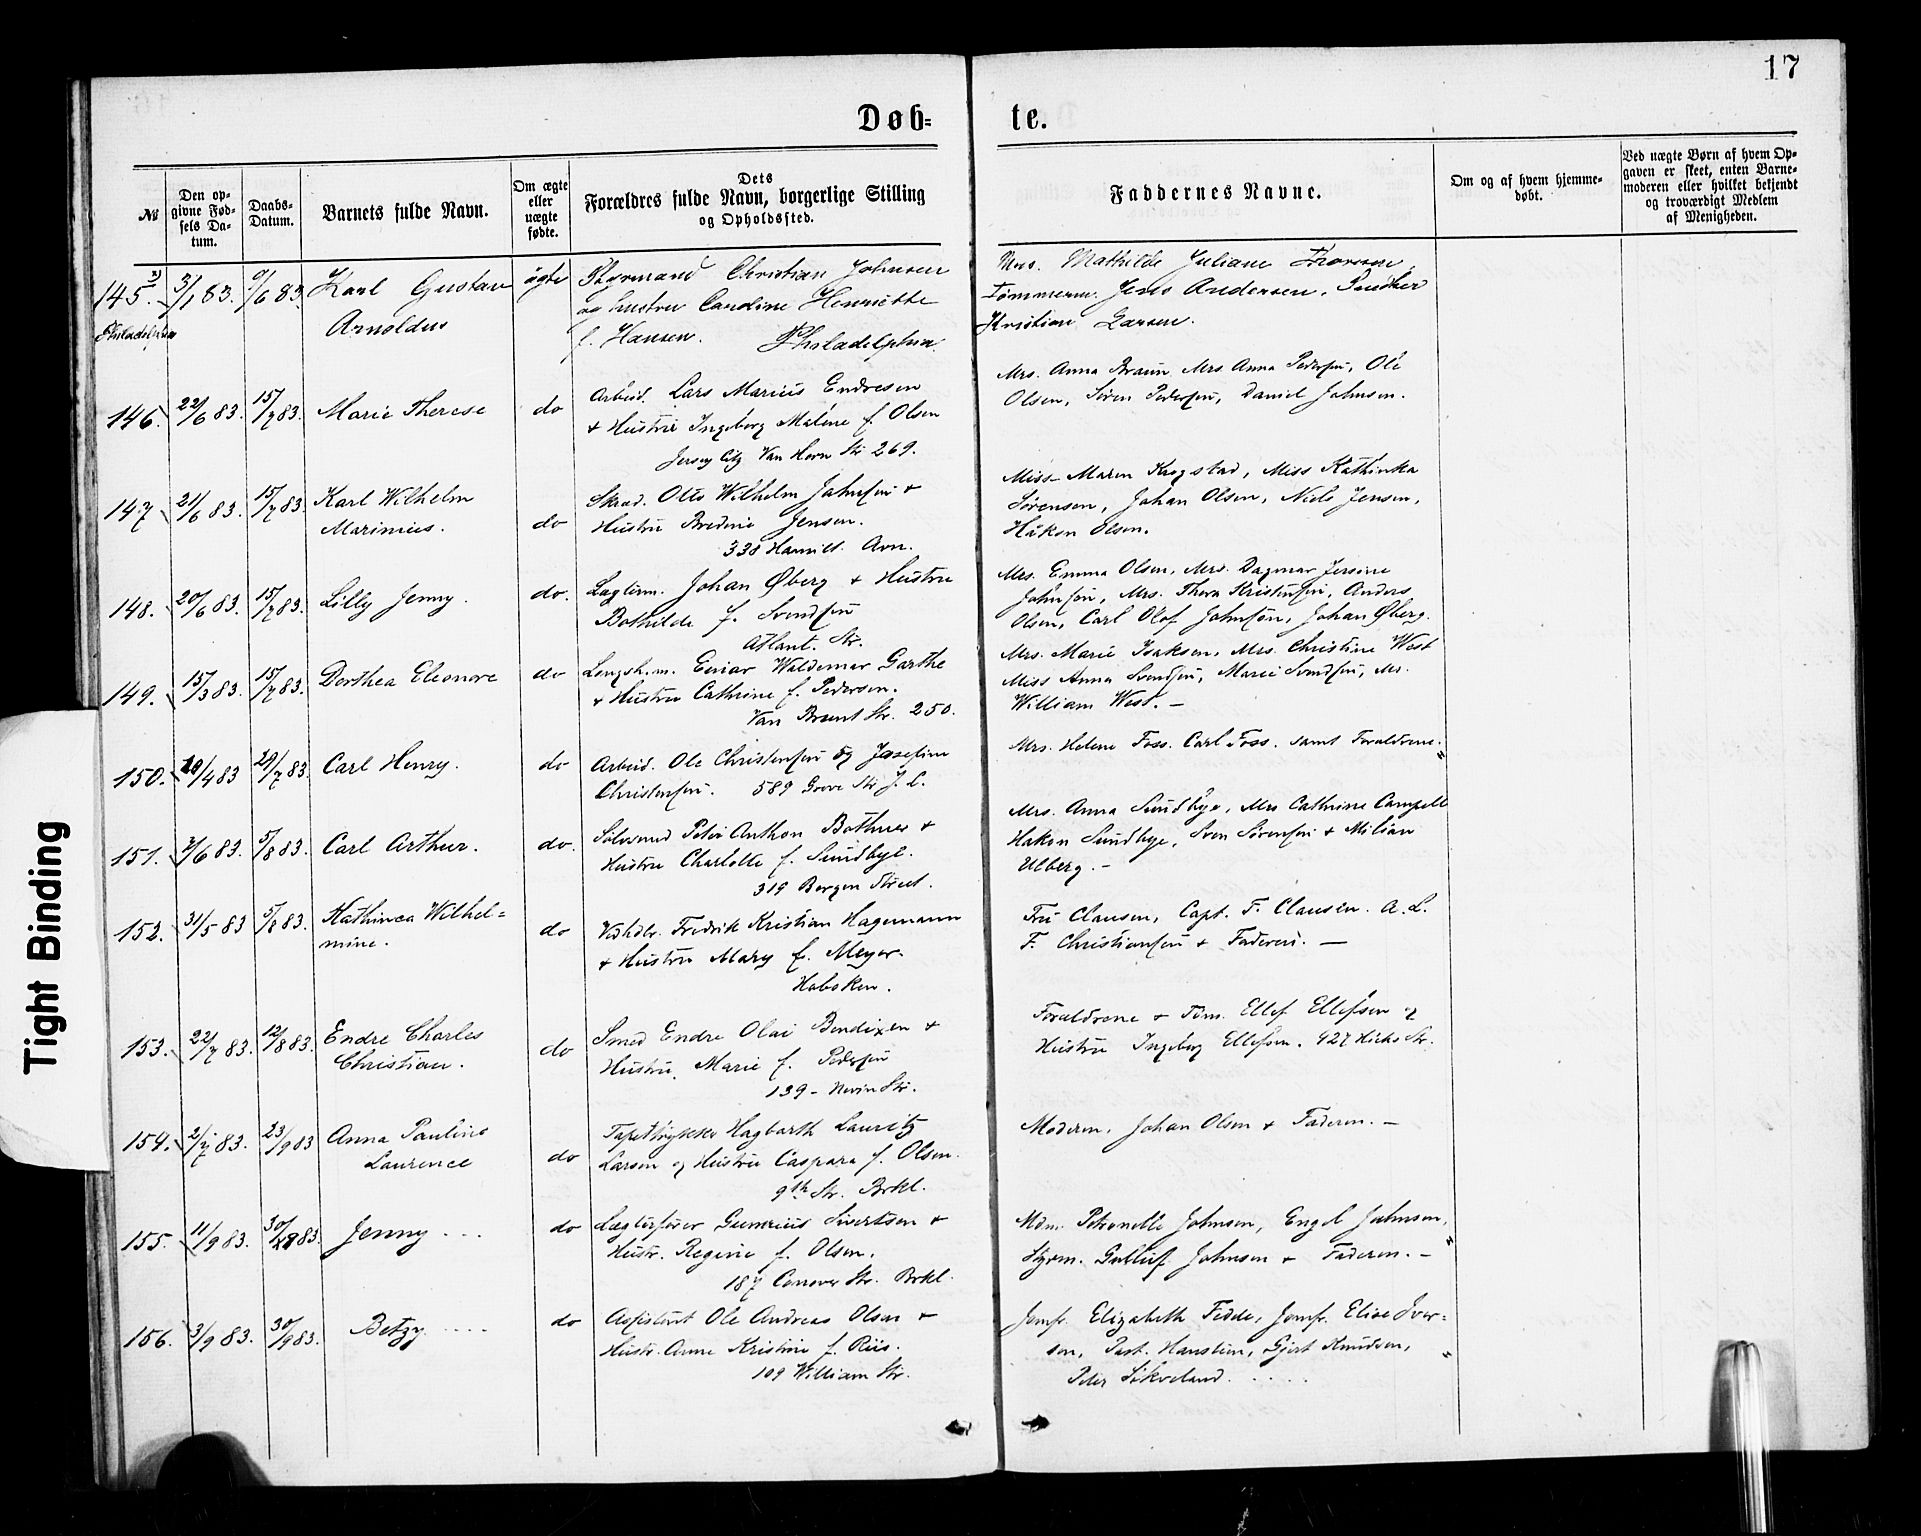 17
Døb=
te.
№
Den op-
givne Fød-
sels Da-
tum.
Daabs-
Datum.
Barnets fulde Navn.
Om ægte
eller
uægte
fødte.
Dets
Forældres fulde Navn, borgerlige Stilling
og Opholdssted.
Faddernes Navne.
Om og af hvem hjemme-
døbt.
Ved uægte Børn af hvem Op-
gaven er skeet, enten Barne-
moderen eller hvilket bekjendt
og troværdigt Medlem
af Menigheden.
145. 3/1 83. 9/6 83. Karl Gustav
Arnoldus
Philadelphia
ägte
Styrmand Christian Johnsen
og hustru Caroline Henriette
f. Hansen. Philadelphia.
Mrs. Mathilde Juliane
Tømmerm. Jens Andersen,
Kristian Larsen.
146. 22/6 83. 15/7 83. Marie Therese do
Arbeid. Lars Marius Endresen
+ Hustru Ingeborg Malene f. Olsen
Jersey City Van Horn Str 269.
Mrs. Anna Braun, Mrs Anna Pedersen, Ole
Olsen, Søren Pedersen, Daniel Johnsen.
147. 21/6 83. 15/7 83. Karl Wilhelm
Marinius. do
Skrad. Otto Wilhelm Johnsen +
Hustru Bredine Jensen.
338 Hamilt. Avn.
Miss Maren Krogstad, Miss Kathinka
Sørensen, Johan Olsen, Niels Jensen,
Håkon Olsen.
148. 20/6 83. 15/7 83. Lilly Jenny. do.
Lagterm. Johan Øberg + Hustru
Bothilde f. Svendsen
Atlant. Str.
Mrs. Emma Olsen, Mrs. Dagmar Jensine
Johnsen, Mrs. Thora Kristensen, Anders
Olsen, Carl Olof Johnson, Johan Øberg.
149. 15/3 83. 15/7 83. Dorthea Eleonore do
Longsh.m. Einar Waldemar Garthe
+ Hustru Cathrine f. Pedersen.
Van Brunt Str. 250.
Mrs. Marie Isaksen, Mrs. Christine West
Miss Anna Svendsen, Marie Svendsen, Mr.
William West. —
150. 18/4 83 29/7 83. Carl Henry. do
Arbeid. Ole Christensen og Josefine
Christensen. 589 Grove Str J. C.
Mrs. Helene Foss. Carl Foss. samt Forældrene.
151. 3/6 83. 5/8 83. Carl Arthur. do.
Sølvsmed Peter Anthon Bothner +
Hustru Charlotte f. Sundbye.
319 Bergen Street.
Mrs. Anna Sundbye, Mrs Cathrine Campell
Hakon Sundbye, Sven Sørensen + Milian
Ulberg. —
152. 31/5 83 5/8 83. Kathinca Wilhel=
mine. do
Fredrik Kristian Hagemann
+ Hustru Mary f. Meyer.
Hoboken.
Fru Clausen, Capt. F. Clausen. A. L.
F. Christiansen + Faderen. —
153. 22/7 83. 12/8 83. Endre Charles
Christian. do
Smed Endre Olai Bendixen +
Hustru Marie f. Pedersen
139 - Nevin Str.
Forældrene + Tøm. Ellef Ellefsen og
Hustru Ingeborg Ellefsen. 427 Hicks Str.
154. 2/7 83. 23/9 83 Anna Pauline
Laurence do
Tapettrykker Hagbarth Lauritz
Larsen og Hustru Caspara f. Olsen.
9th Str. Brkl.
Moderen, Johan Olsen + Faderen. —
155. 11/9 83. 30/9 83. Jenny ... do
Lægterfører Gunerius Sivertsen +
Hustr. Regine f. Olsen.
187 Conover Str. Brkl.
Mdm. Petronelle Johnsen, Engel Johnsen,
Styrm. Gullief Johnsen + Faderen. —
156. 3/9 83. 30/9 83. Betzy .... do
Assistent Ole Andreas Olsen +
Hustr. Anne Kristine f. Riis.
109 William Str.
Jomfr. Elizabeth Fedde, Jomfr. Elise Iver=
sen, Past. Hansteen, Gjert Knudsen,
Peter Sikveland.
Tight Binding